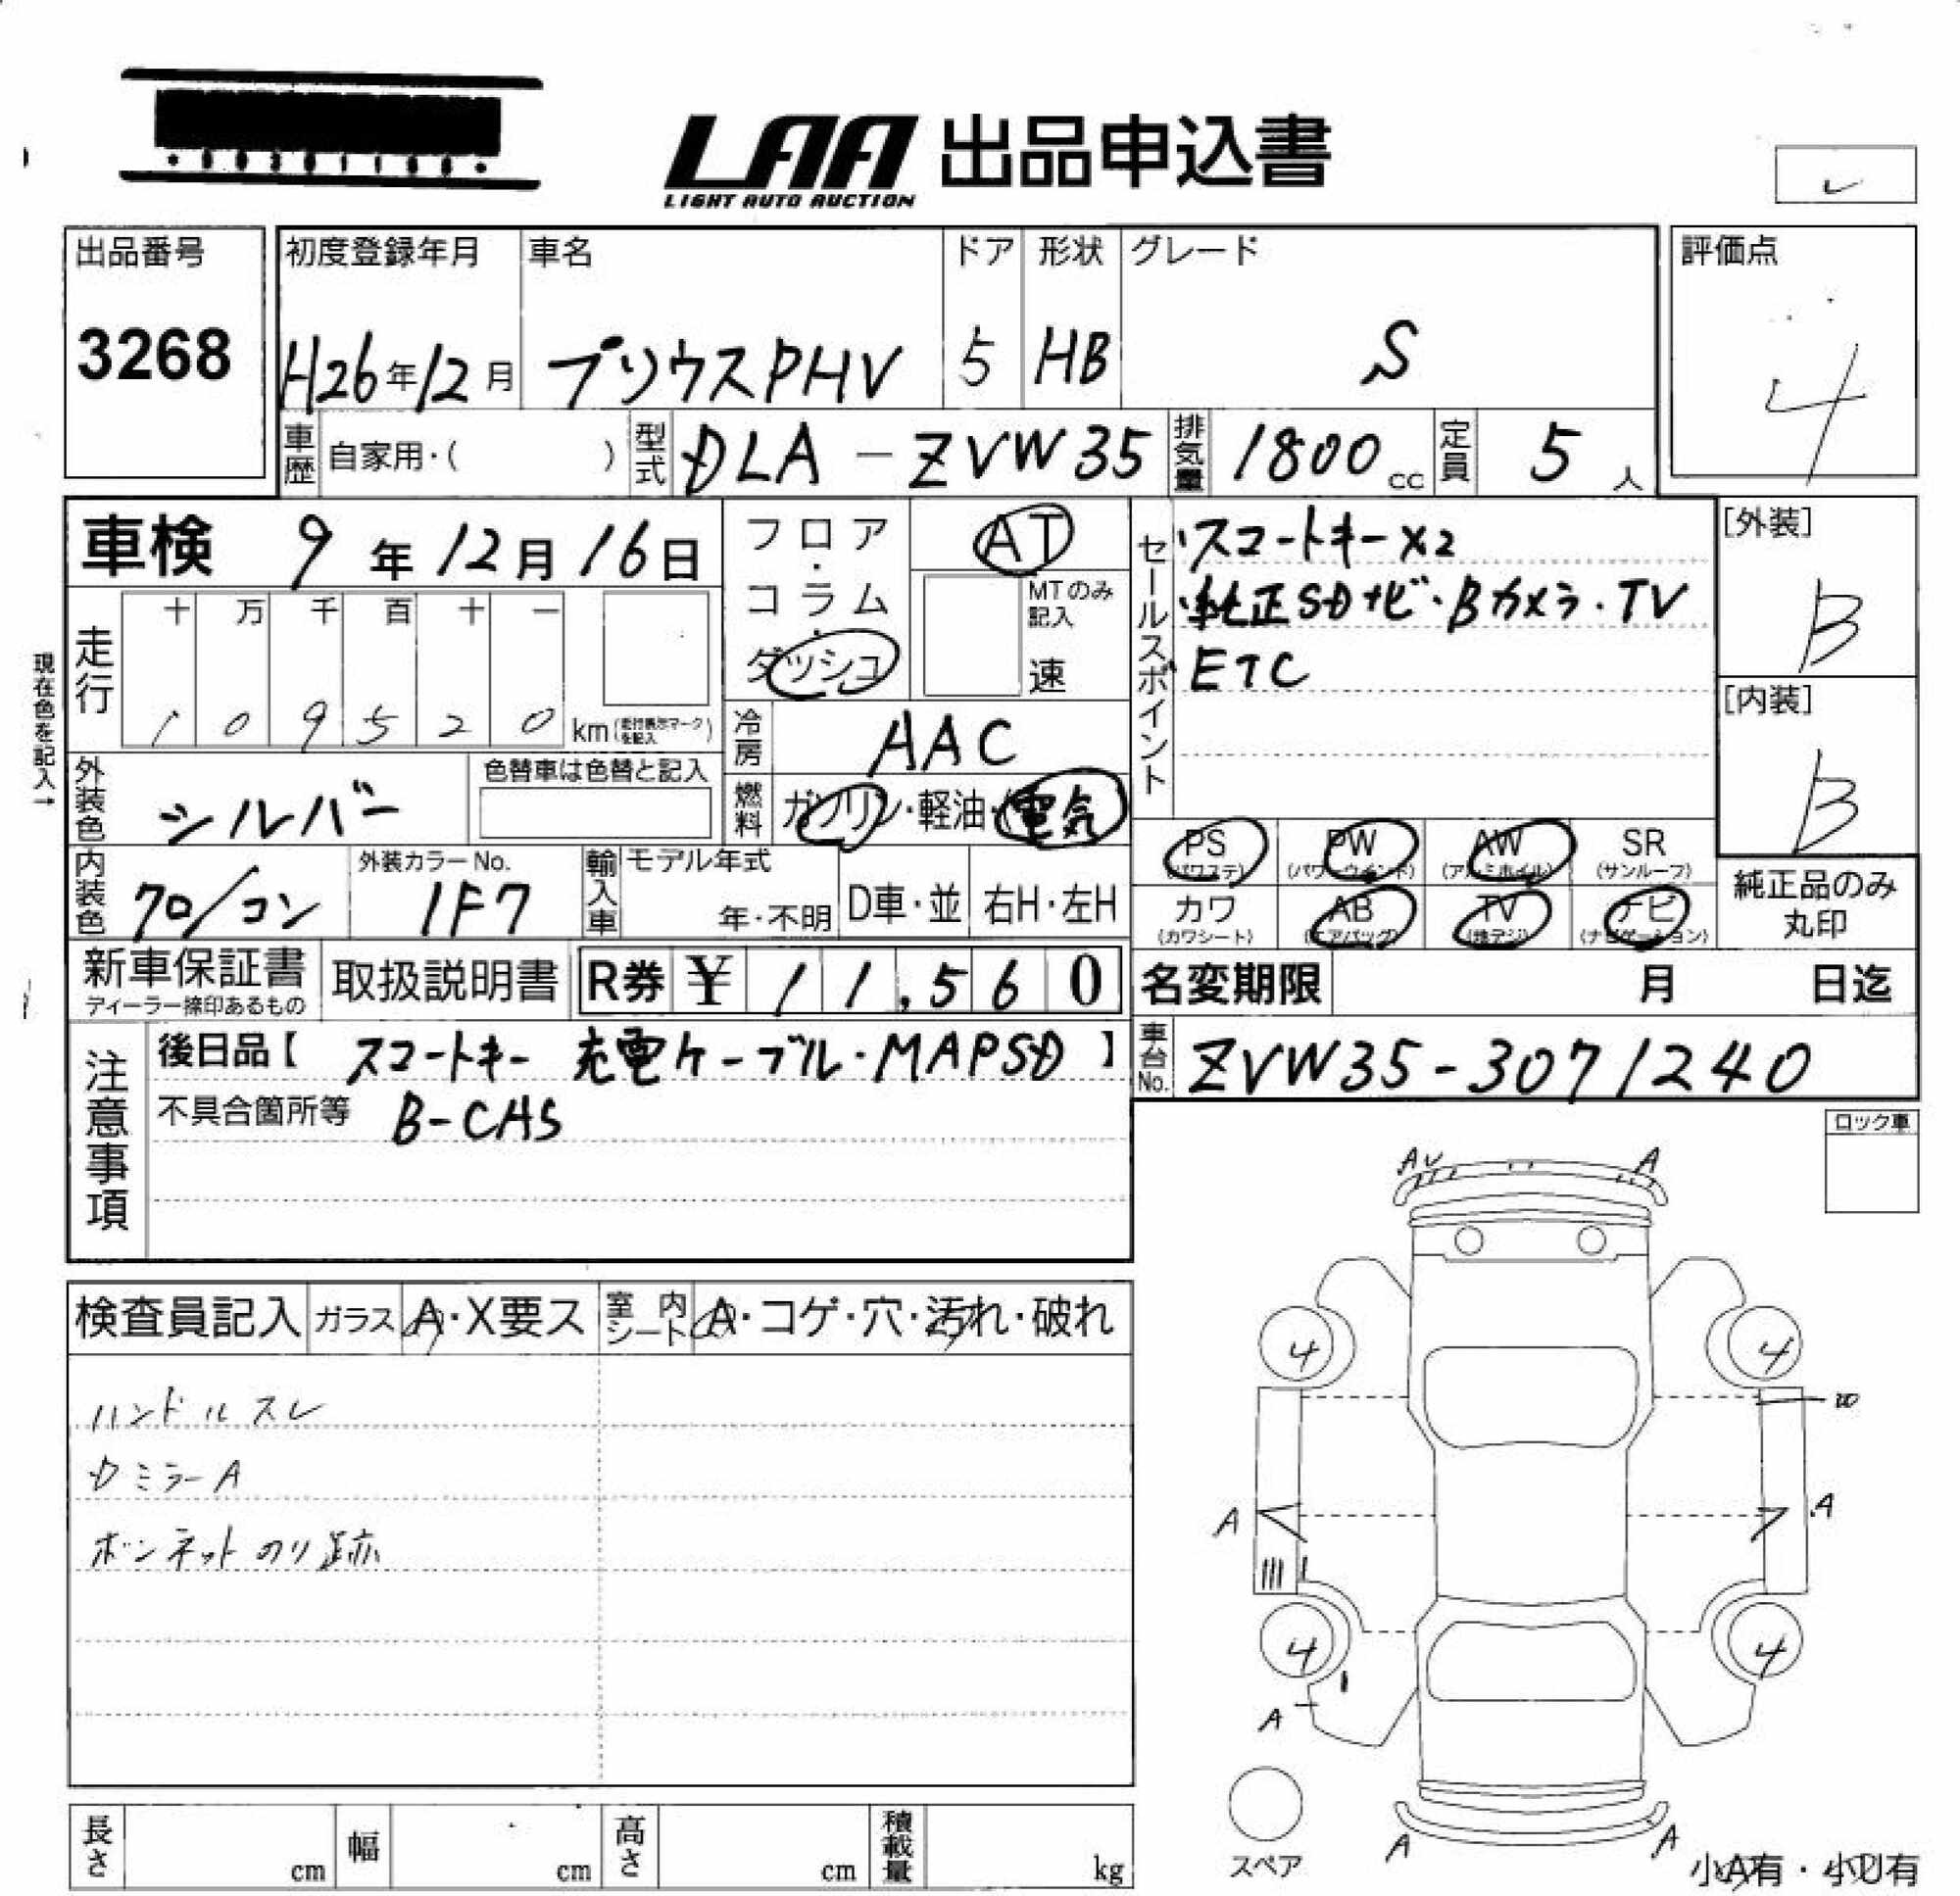 LAA 出品申込書
LIGHT AUTO AUCTION
出品番号
3268
初度登録年月
H26年12月
車名
プリウスPHV
ドア
5
形状
HB
グレード
S
評価点
4
車歴 自家用・( )
型式 DLA-ZVW35
排気量 1800 cc
定員 5 人
車検 9年12月16日
フロア・コラム・ダッシュ
AT
MTのみ記入
速
セールスポイント
・スマートキー×2
・純正SDナビ・Bカメラ・TV
・ETC
[外装]
B
[内装]
B
現在色を記入→
走行
十 万 千 百 十 一
1 0 9 5 2 0 km (走行表示マークを記入)
冷房 AAC
外装色 シルバー
色替車は色替と記入
燃料 ガソリン・軽油・(電気)
内装色 クロ/コン
外装カラーNo.
1F7
輸入車
モデル年式
年・不明
D車・並
右H・左H
PS (パワステ)
PW (パワーウインド)
AW (アルミホイル)
SR (サンルーフ)
カワ (カワシート)
AB (エアバッグ)
TV (地デジ)
ナビ (ナビゲーション)
純正品のみ丸印
新車保証書
ディーラー捺印あるもの
取扱説明書
R券 ¥ 11,560
名変期限 月 日迄
注意事項
後日品【 スマートキー 充電ケーブル・MAPSD 】
不具合箇所等 B-CAS
車台No. ZVW35-3071240
ロック車
検査員記入
ガラス A・X要ス
室内シート A・コゲ・穴・汚れ・破れ
ハンドルスレ
Dミラー A
ボンネットのり跡
A A
4 4
A A
4 4
A
A A
スペア
小A有・小U有
長さ cm
幅 cm
高さ cm
積載量 kg